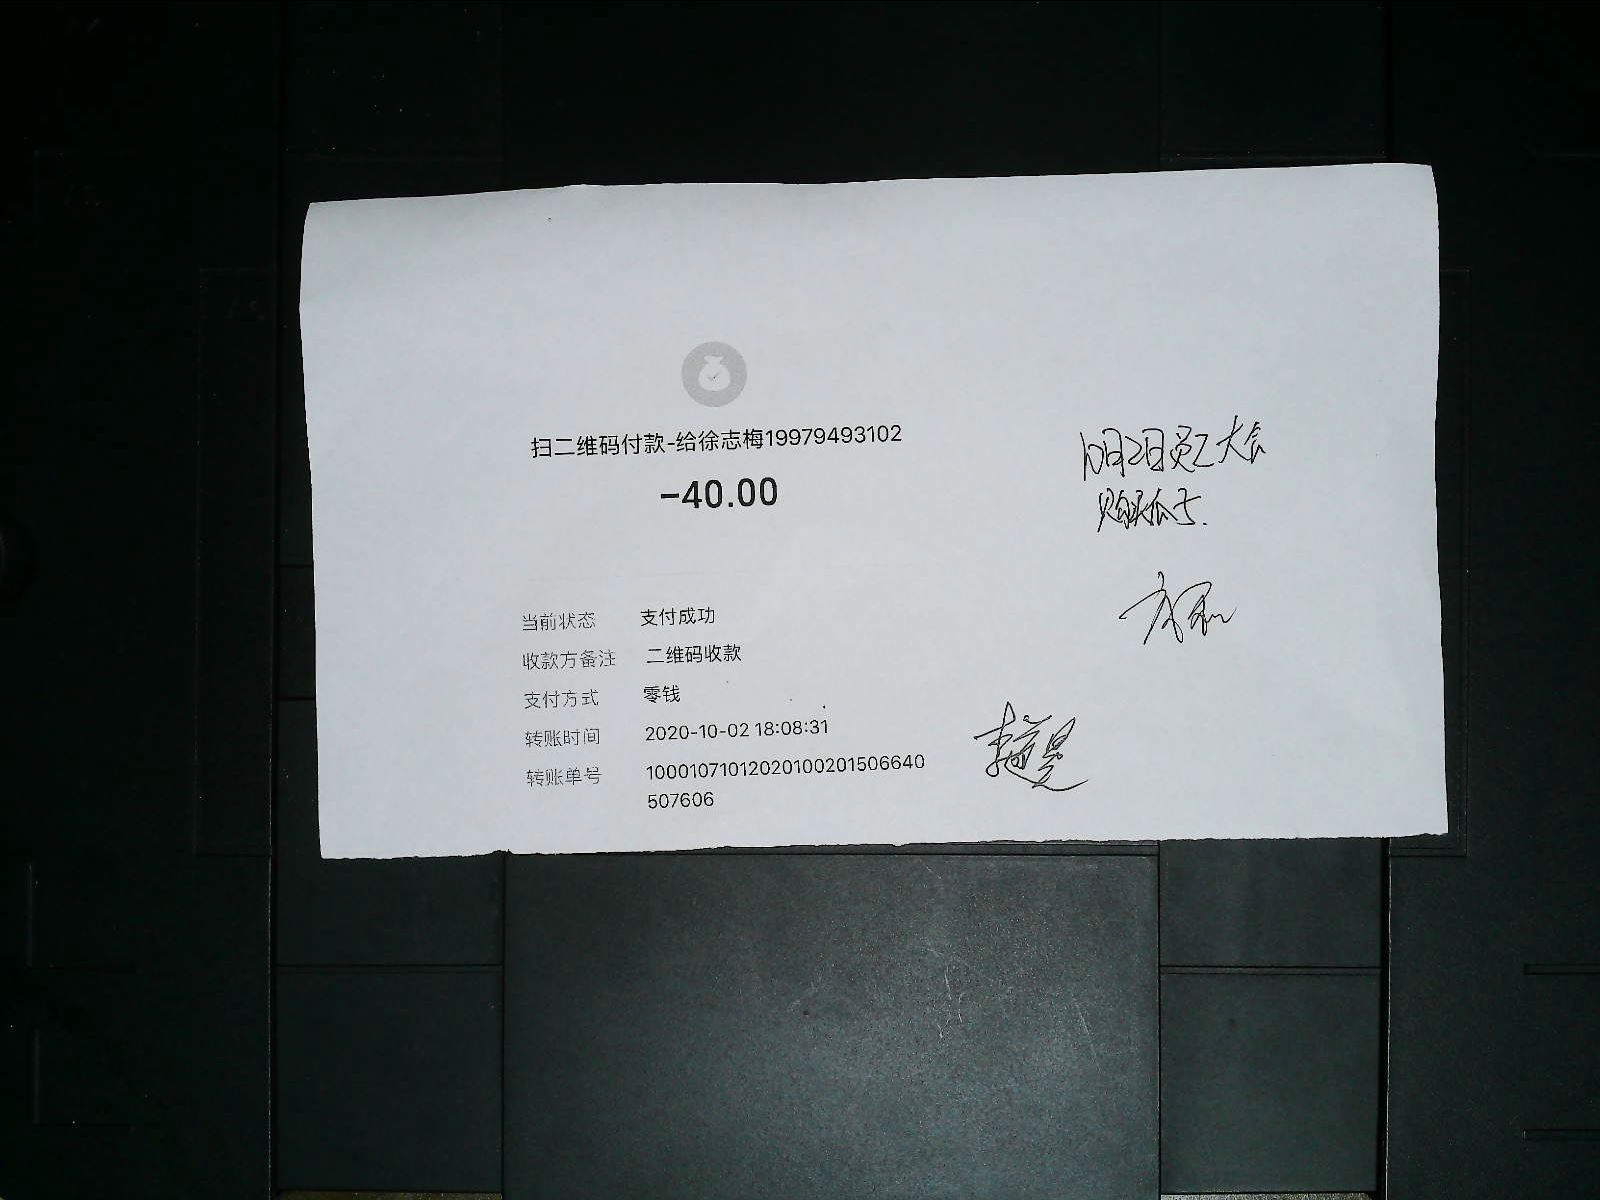 扫二维码付款-给徐志梅19979493102
-40.00
当前状态 支付成功
收款方备注 二维码收款
支付方式 零钱
转账时间 2020-10-02 18:08:31
转账单号 1000107101202010020150664​0
507606
10月2日员工大会
购买瓜子.